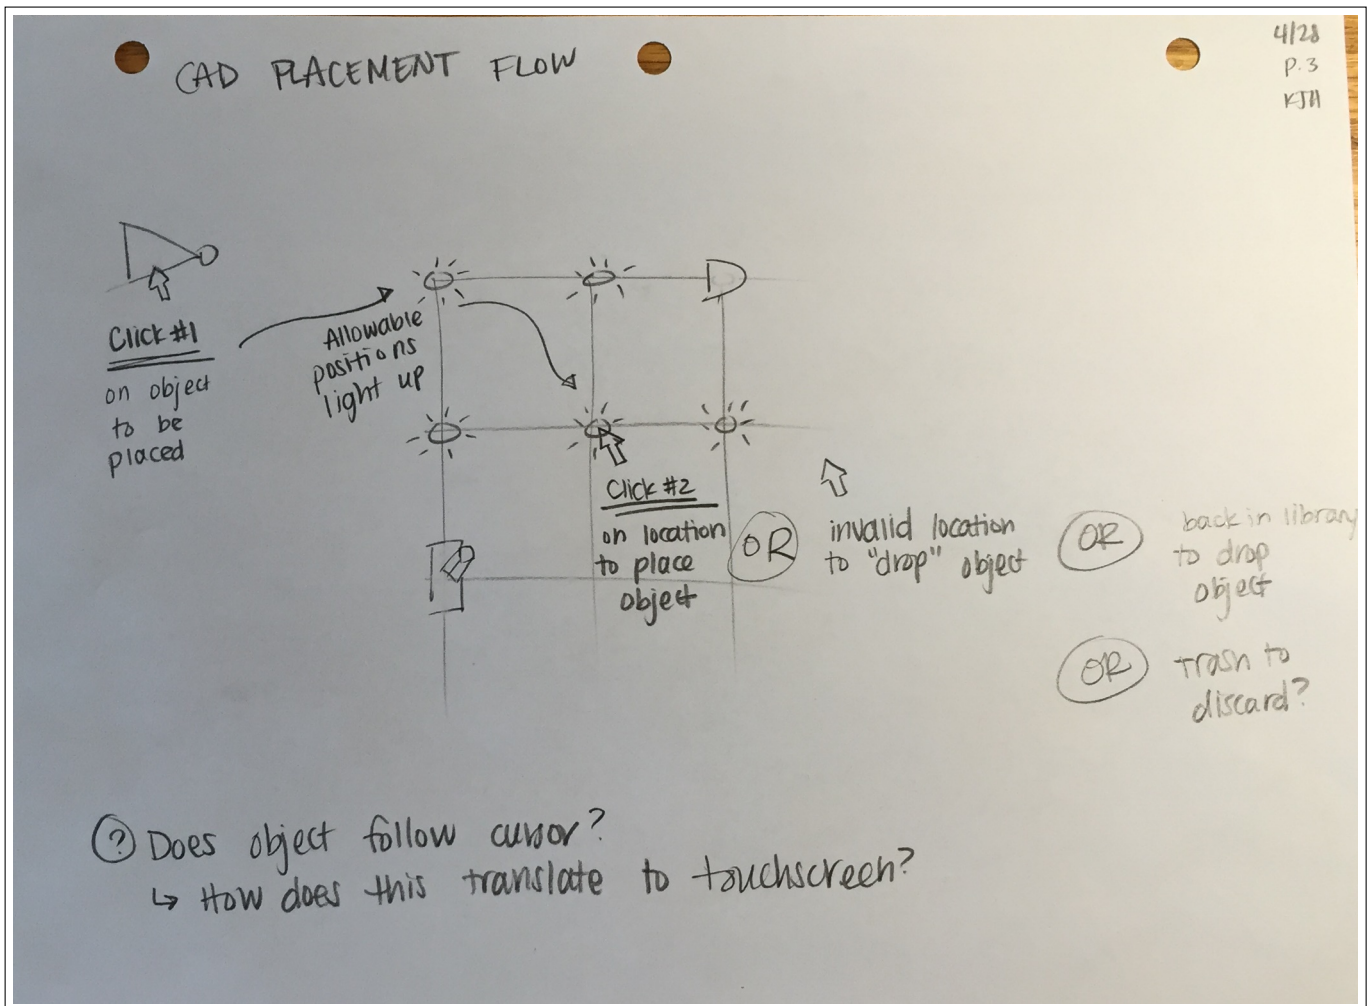 CAD PLACEMENT FLOW
4/28
P.3
KJH
Click #1
on object
to be
placed
Allowable
positions
light up
Click #2
on location
to place
object
OR
invalid location
to "drop" object
OR
back in library
to drop
object
OR
trash to
discard?
? Does object follow cursor?
↳ How does this translate to touchscreen?